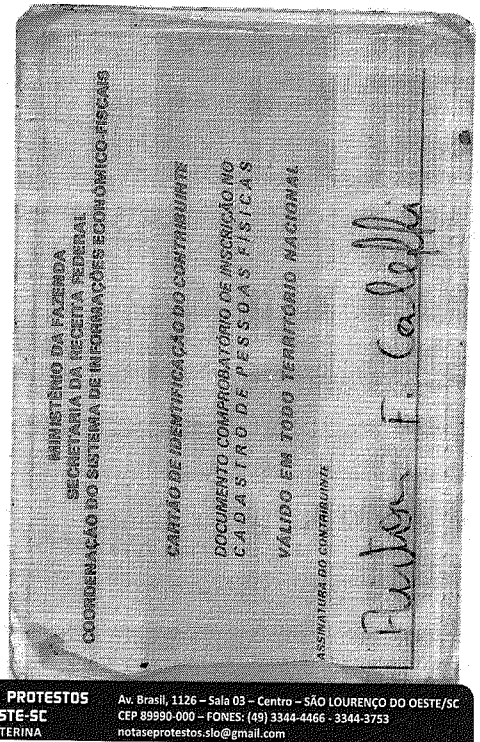 MINISTÉRIO DA FAZENDA
SECRETARIA DA RECEITA FEDERAL
COORDENAÇÃO DO SISTEMA DE INFORMAÇÕES ECONÔMICO-FISCAIS
CARTÃO DE IDENTIFICAÇÃO DO CONTRIBUINTE
DOCUMENTO COMPROBATÓRIO DE INSCRIÇÃO NO
CADASTRO DE PESSOAS FÍSICAS
VÁLIDO EM TODO TERRITÓRIO NACIONAL
ASSINATURA DO CONTRIBUINTE
F. Caleffi
PROTESTOS
STE-SC
TERINA
Av. Brasil, 1126 – Sala 03 – Centro – SÃO LOURENÇO DO OESTE/SC
CEP 89990-000 – FONES: (49) 3344-4466 - 3344-3753
notaseprotestos.slo@gmail.com